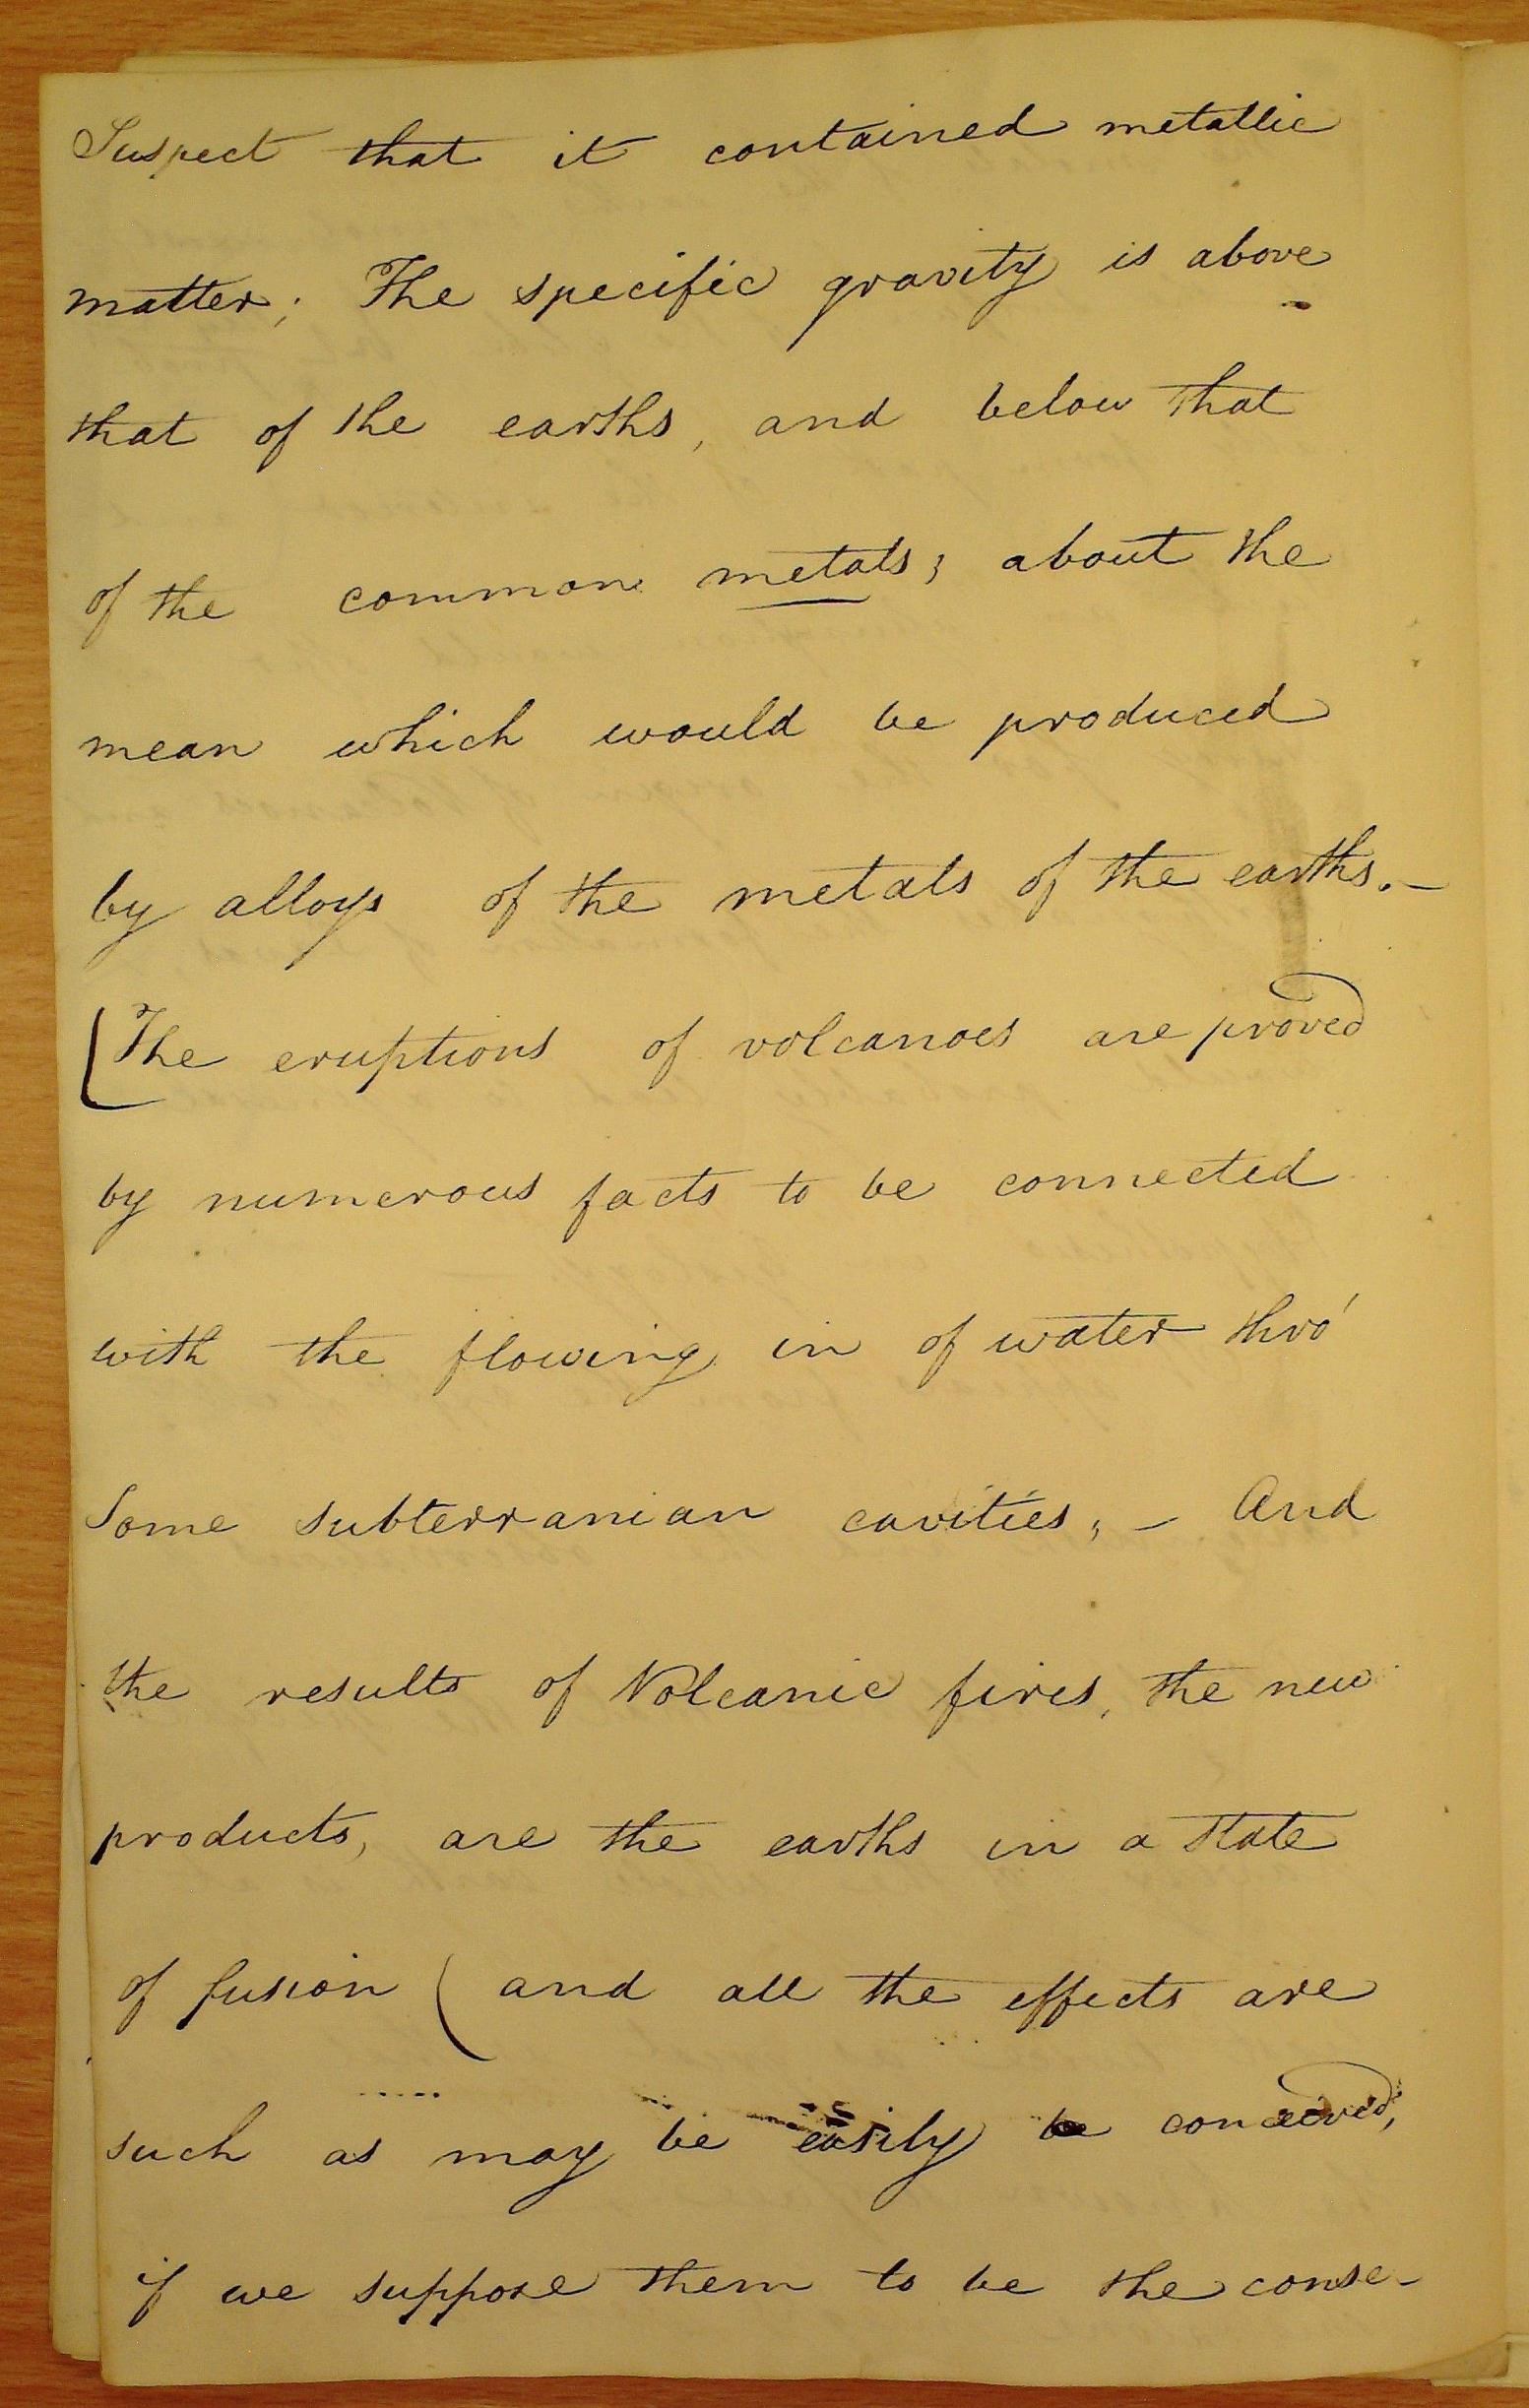 Suspect that it contained metallic
matter; The specific gravity is above
that of the earths, and below that
of the common metals; about the
mean which would be produced
by alloys of the metals of the earths.—
[The eruptions of volcanoes are proved
by numerous facts to be connected
with the flowing in of water thro'
Some subterranian cavities, — And
the results of Volcanic fires, the new
products, are the earths in a state
of fusion ( and all the effects are
such as may be easily be conceived,
if we suppose them to be the conse-